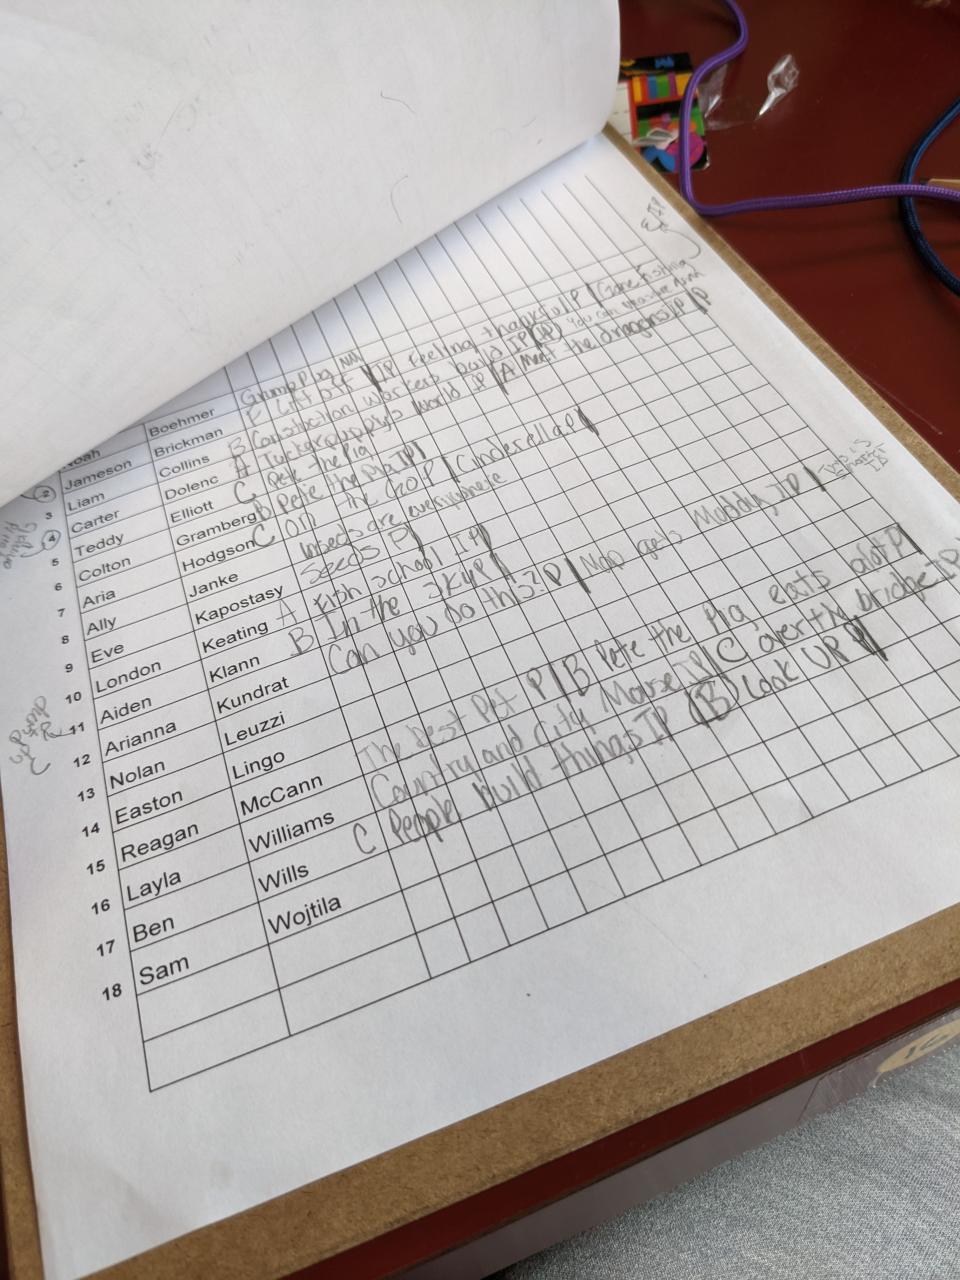 Noah Boehmer Grump Pig NM
Jameson Brickman F Lift off IP Feeling thankful P Gone Fishing
2 Liam Collins B Construction workers build IP (P) You can
3 Carter Dolenc A Tucker puppy's world IP A Meet the dragons IP P
4 Teddy Elliott C Pete the Pig
5 Colton Gramberg B Pete the IP
6 Aria Hodgson C On the Go P Cinderella P
7 Ally Janke Insects are everywhere
8 Eve Kapostasy Seeds P
9 London Keating A Fish school IP
10 Aiden Klann B In the sky P
11 Arianna Kundrat Can you do this? P Nap gets Maddy IP
12 Nolan Leuzzi
13 Easton Lingo
14 Reagan McCann The best Pet P B Pete the Pig eats alot P
15 Layla Williams Country and City Mouse IP C over the bridge IP
16 Ben Wills C People build things IP (B) Look UP P
17 Sam Wojtila
18